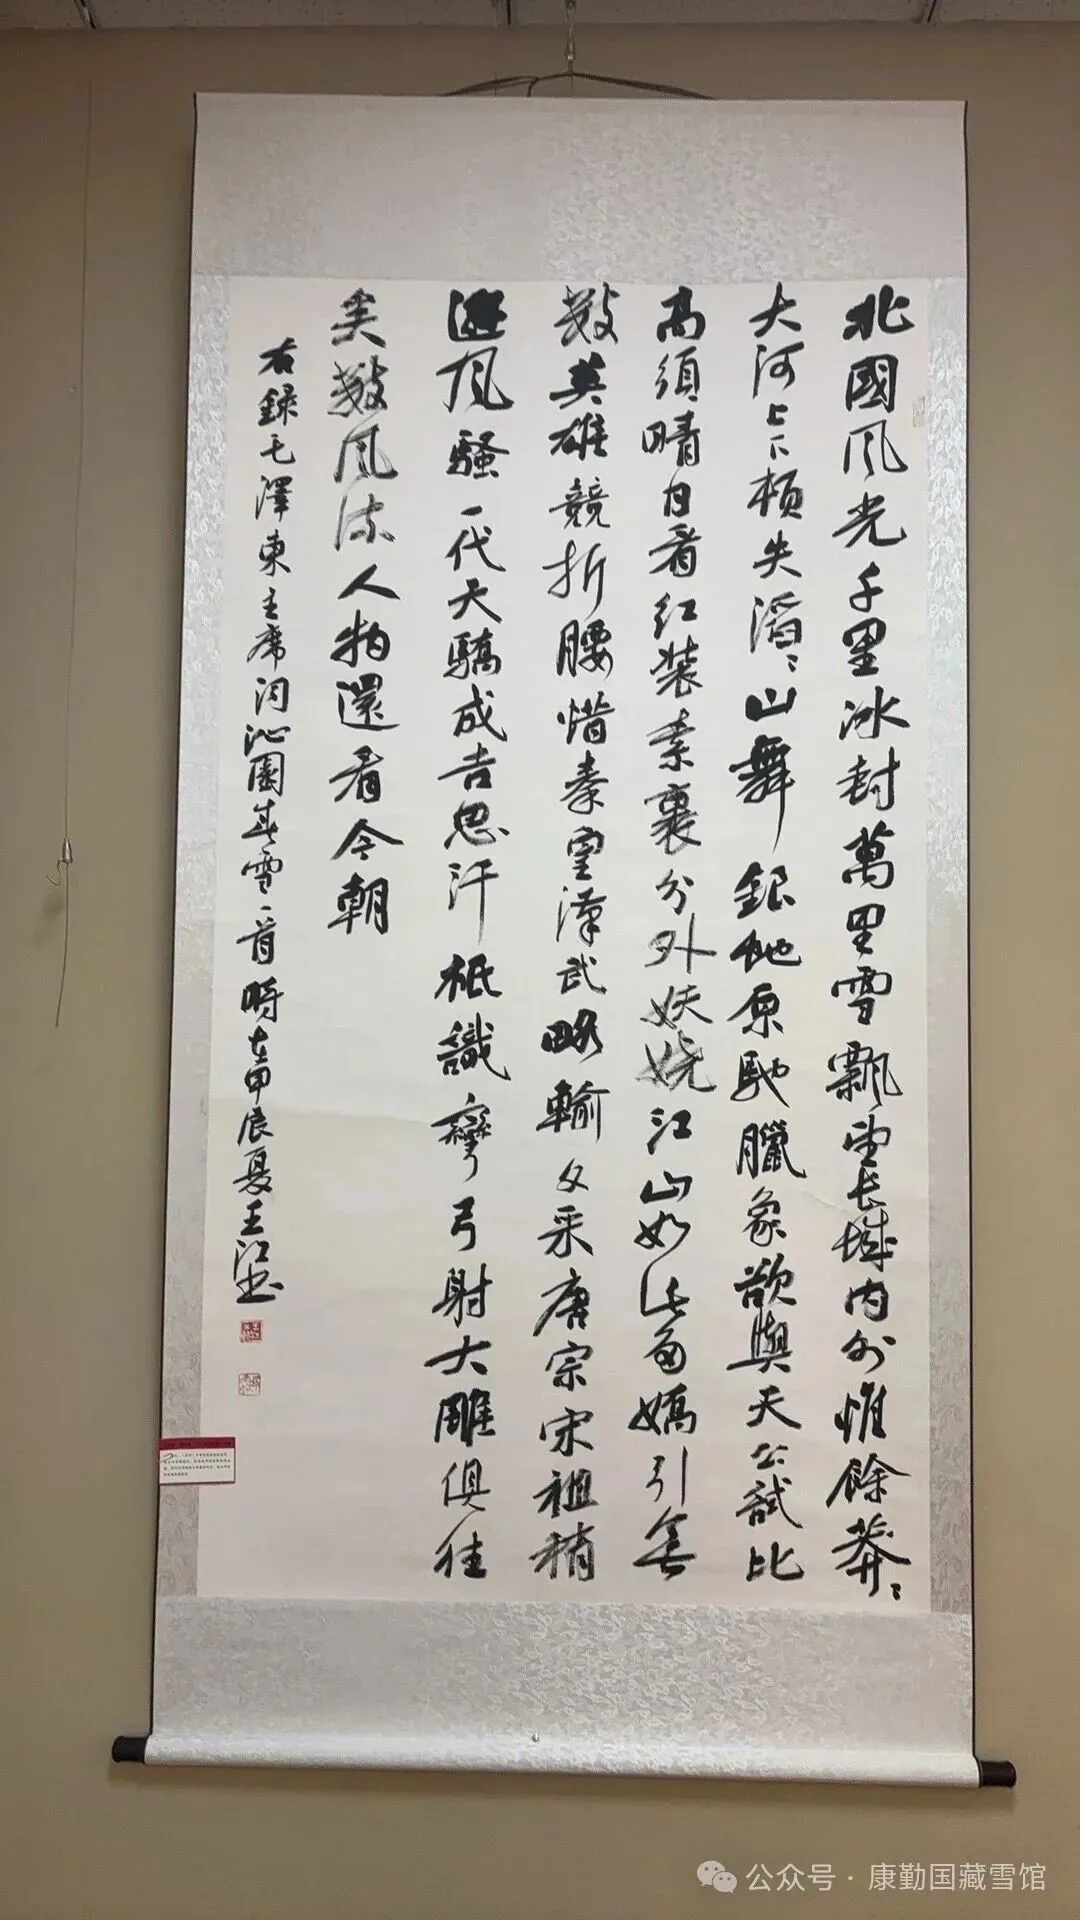 北國風光千里冰封萬里雪飄望長城內外惟餘莽〻
大河上下頓失滔〻山舞銀蛇原馳臘象欲與天公試比
高須晴日看紅裝素裹分外妖嬈江山如此多嬌引無
數英雄競折腰惜秦皇漢武略輸文采唐宗宋祖稍
遜風騷一代天驕成吉思汗祇識彎弓射大雕俱往
矣數風流人物還看今朝
右錄毛澤東主席詞沁園春雪一首時在甲辰夏王江書
公众号·康勤国藏雪馆